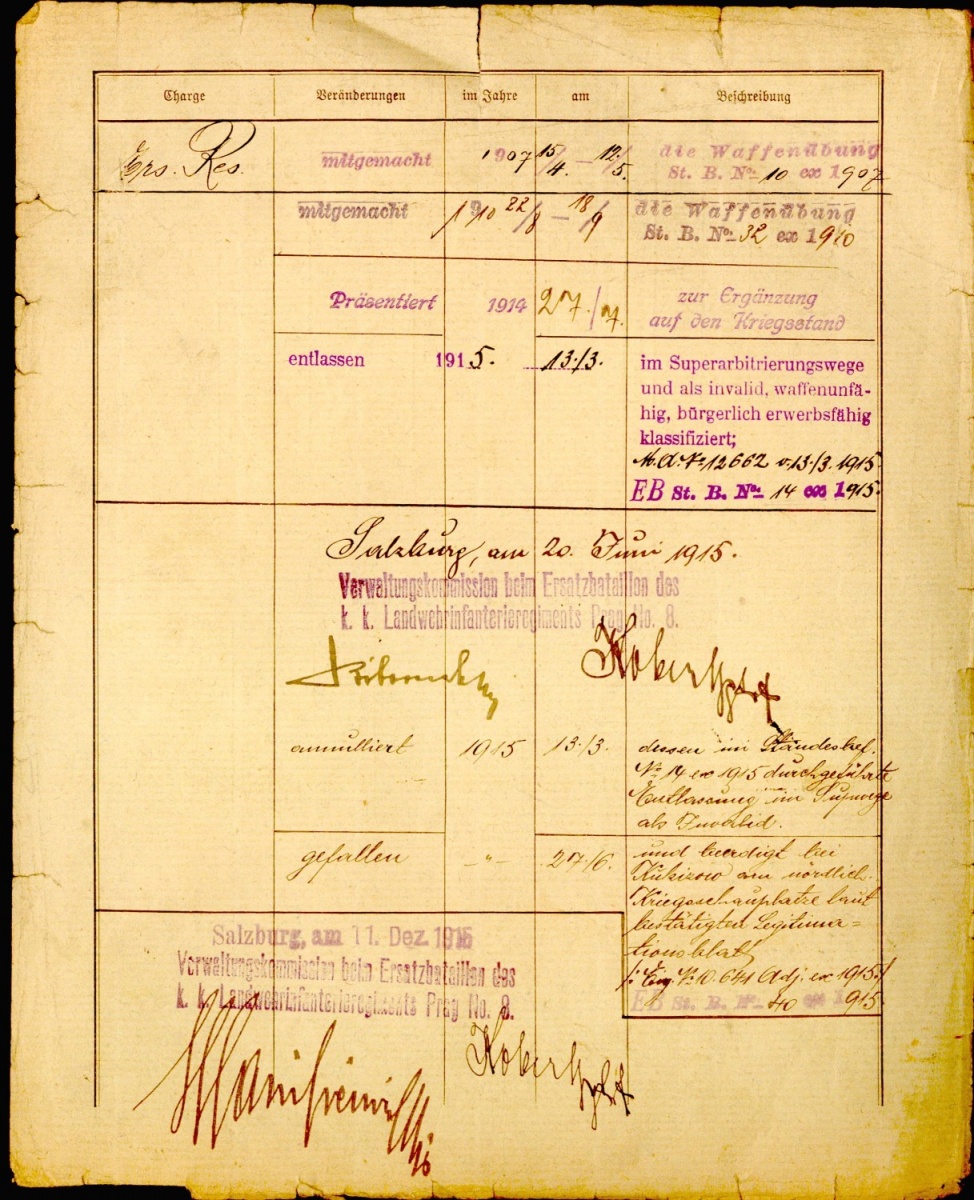 Charge Veränderungen im Jahre am Beschreibung
Ers. Res. mitgemacht 1907 15/4. – 12./5. die Waffenübung
St. B. No. 10 ex 1907
mitgemacht 1910 22/8 – 18/9 die Waffenübung
St. B. No. 32 ex 1910
Präsentiert 1914 27./7. zur Ergänzung
auf den Kriegsstand
entlassen 1915. 13./3. im Superarbitrierungswege
und als invalid, waffenunfä-
hig, bürgerlich erwerbsfähig
klassifiziert;
M.A. No 12662 v. 13./3. 1915
EB St. B. No. 14 ex 1915.
Salzburg, am 20. Juni 1915.
Verwaltungskommission beim Ersatzbataillon des
k. k. Landwehrinfanterieregiments Prag No. 8.
annulliert 1915 13./3. dessen im Standesbef.
No 14 ex 1915 durchgeführte
Entlassung im Supwege
als Invalid.
gefallen –„– 27/6. und beerdigt bei
Kukizow am nördlich.
Kriegsschauplatze laut
bestätigten Legitima=
tionsblatt
/: No 10.641 Adj. ex 1915 :/
EB St. B. No. 40 ex 1915
Salzburg, am 11. Dez. 1915
Verwaltungskommission beim Ersatzbataillon des
k. k. Landwehrinfanterieregiments Prag No. 8.